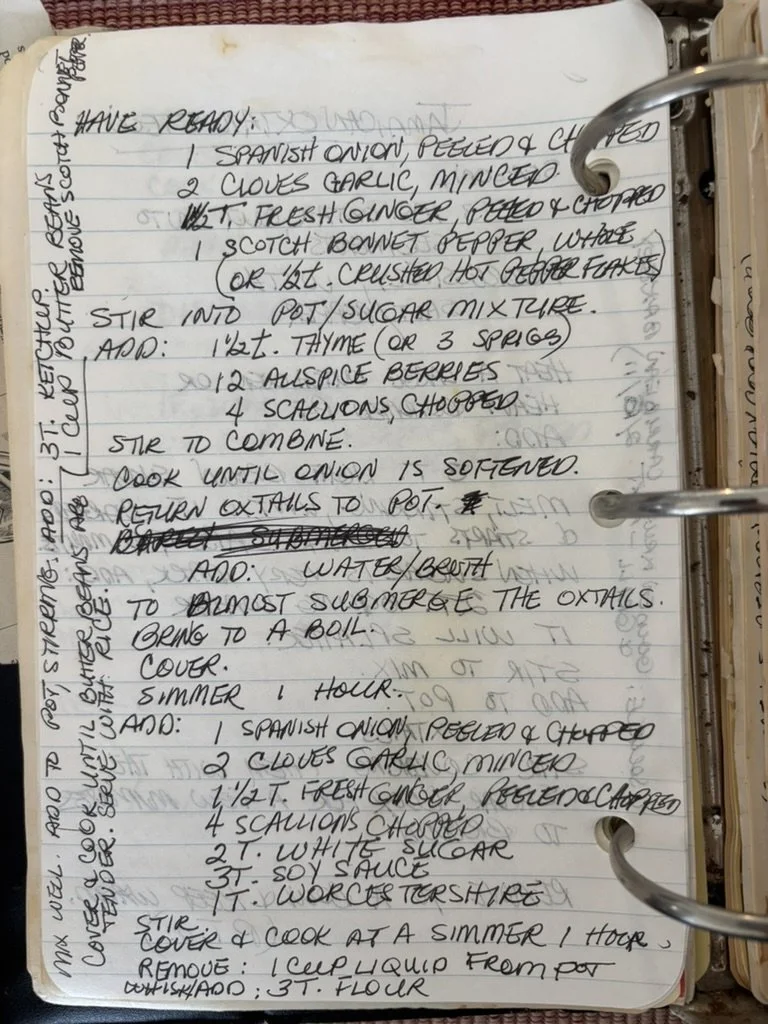 HAVE READY:
1 SPANISH ONION, PEELED & CHOPPED
2 CLOVES GARLIC, MINCED
1½T. FRESH GINGER, PEELED & CHOPPED
1 SCOTCH BONNET PEPPER, WHOLE
(OR ½t. CRUSHED HOT PEPPER FLAKES)
STIR INTO POT/SUGAR MIXTURE.
ADD: 1½t. THYME (OR 3 SPRIGS)
12 ALLSPICE BERRIES
4 SCALLIONS, CHOPPED
STIR TO COMBINE.
COOK UNTIL ONION IS SOFTENED.
RETURN OXTAILS TO POT.
BARELY SUBMERGED
ADD: WATER/BROTH
TO ALMOST SUBMERGE THE OXTAILS.
BRING TO A BOIL.
COVER.
SIMMER 1 HOUR.
ADD: 1 SPANISH ONION, PEELED & CHOPPED
2 CLOVES GARLIC, MINCED
1 ½T. FRESH GINGER, PEELED & CHOPPED
4 SCALLIONS, CHOPPED
2 T. WHITE SUGAR
3T. SOY SAUCE
1T. WORCESTERSHIRE
STIR.
COVER & COOK AT A SIMMER 1 HOUR.
REMOVE: 1 CUP LIQUID FROM POT
WHISK/ADD: 3T. FLOUR
MIX WELL. ADD TO POT, STIRRING. ADD: 3T. KETCHUP
1 CUP BUTTER BEANS
COVER & COOK UNTIL BUTTER BEANS ARE
TENDER. SERVE WITH RICE.
REMOVE SCOTCH BONNET
PEPPER.